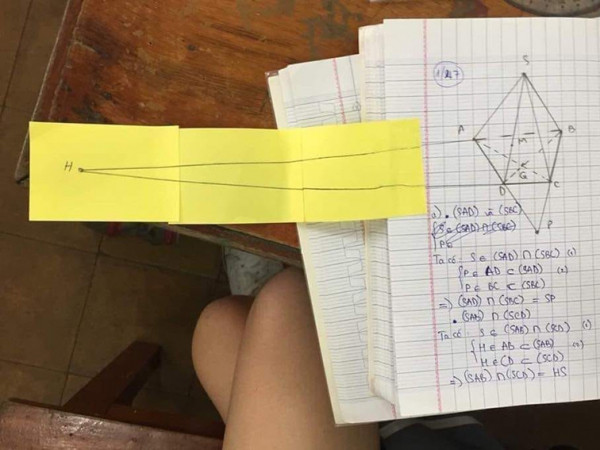 1/ 27
S
A
M
B
H
K
G
D
C
P
a) • (SAD) và (SBC)
S ∈ (SAD) ∩ (SBC)
P ∈
Ta có: S ∈ (SAD) ∩ (SBC) (1)
{ P ∈ AD ⊂ (SAD) (2)
P ∈ BC ⊂ (SBC)
=> (SAD) ∩ (SBC) = SP
• (SAB) ∩ (SCD)
Ta có: S ∈ (SAB) ∩ (SCD) (1)
{ H ∈ AB ⊂ (SAB) (2)
H ∈ CD ⊂ (SCD)
=> (SAB) ∩ (SCD) = HS